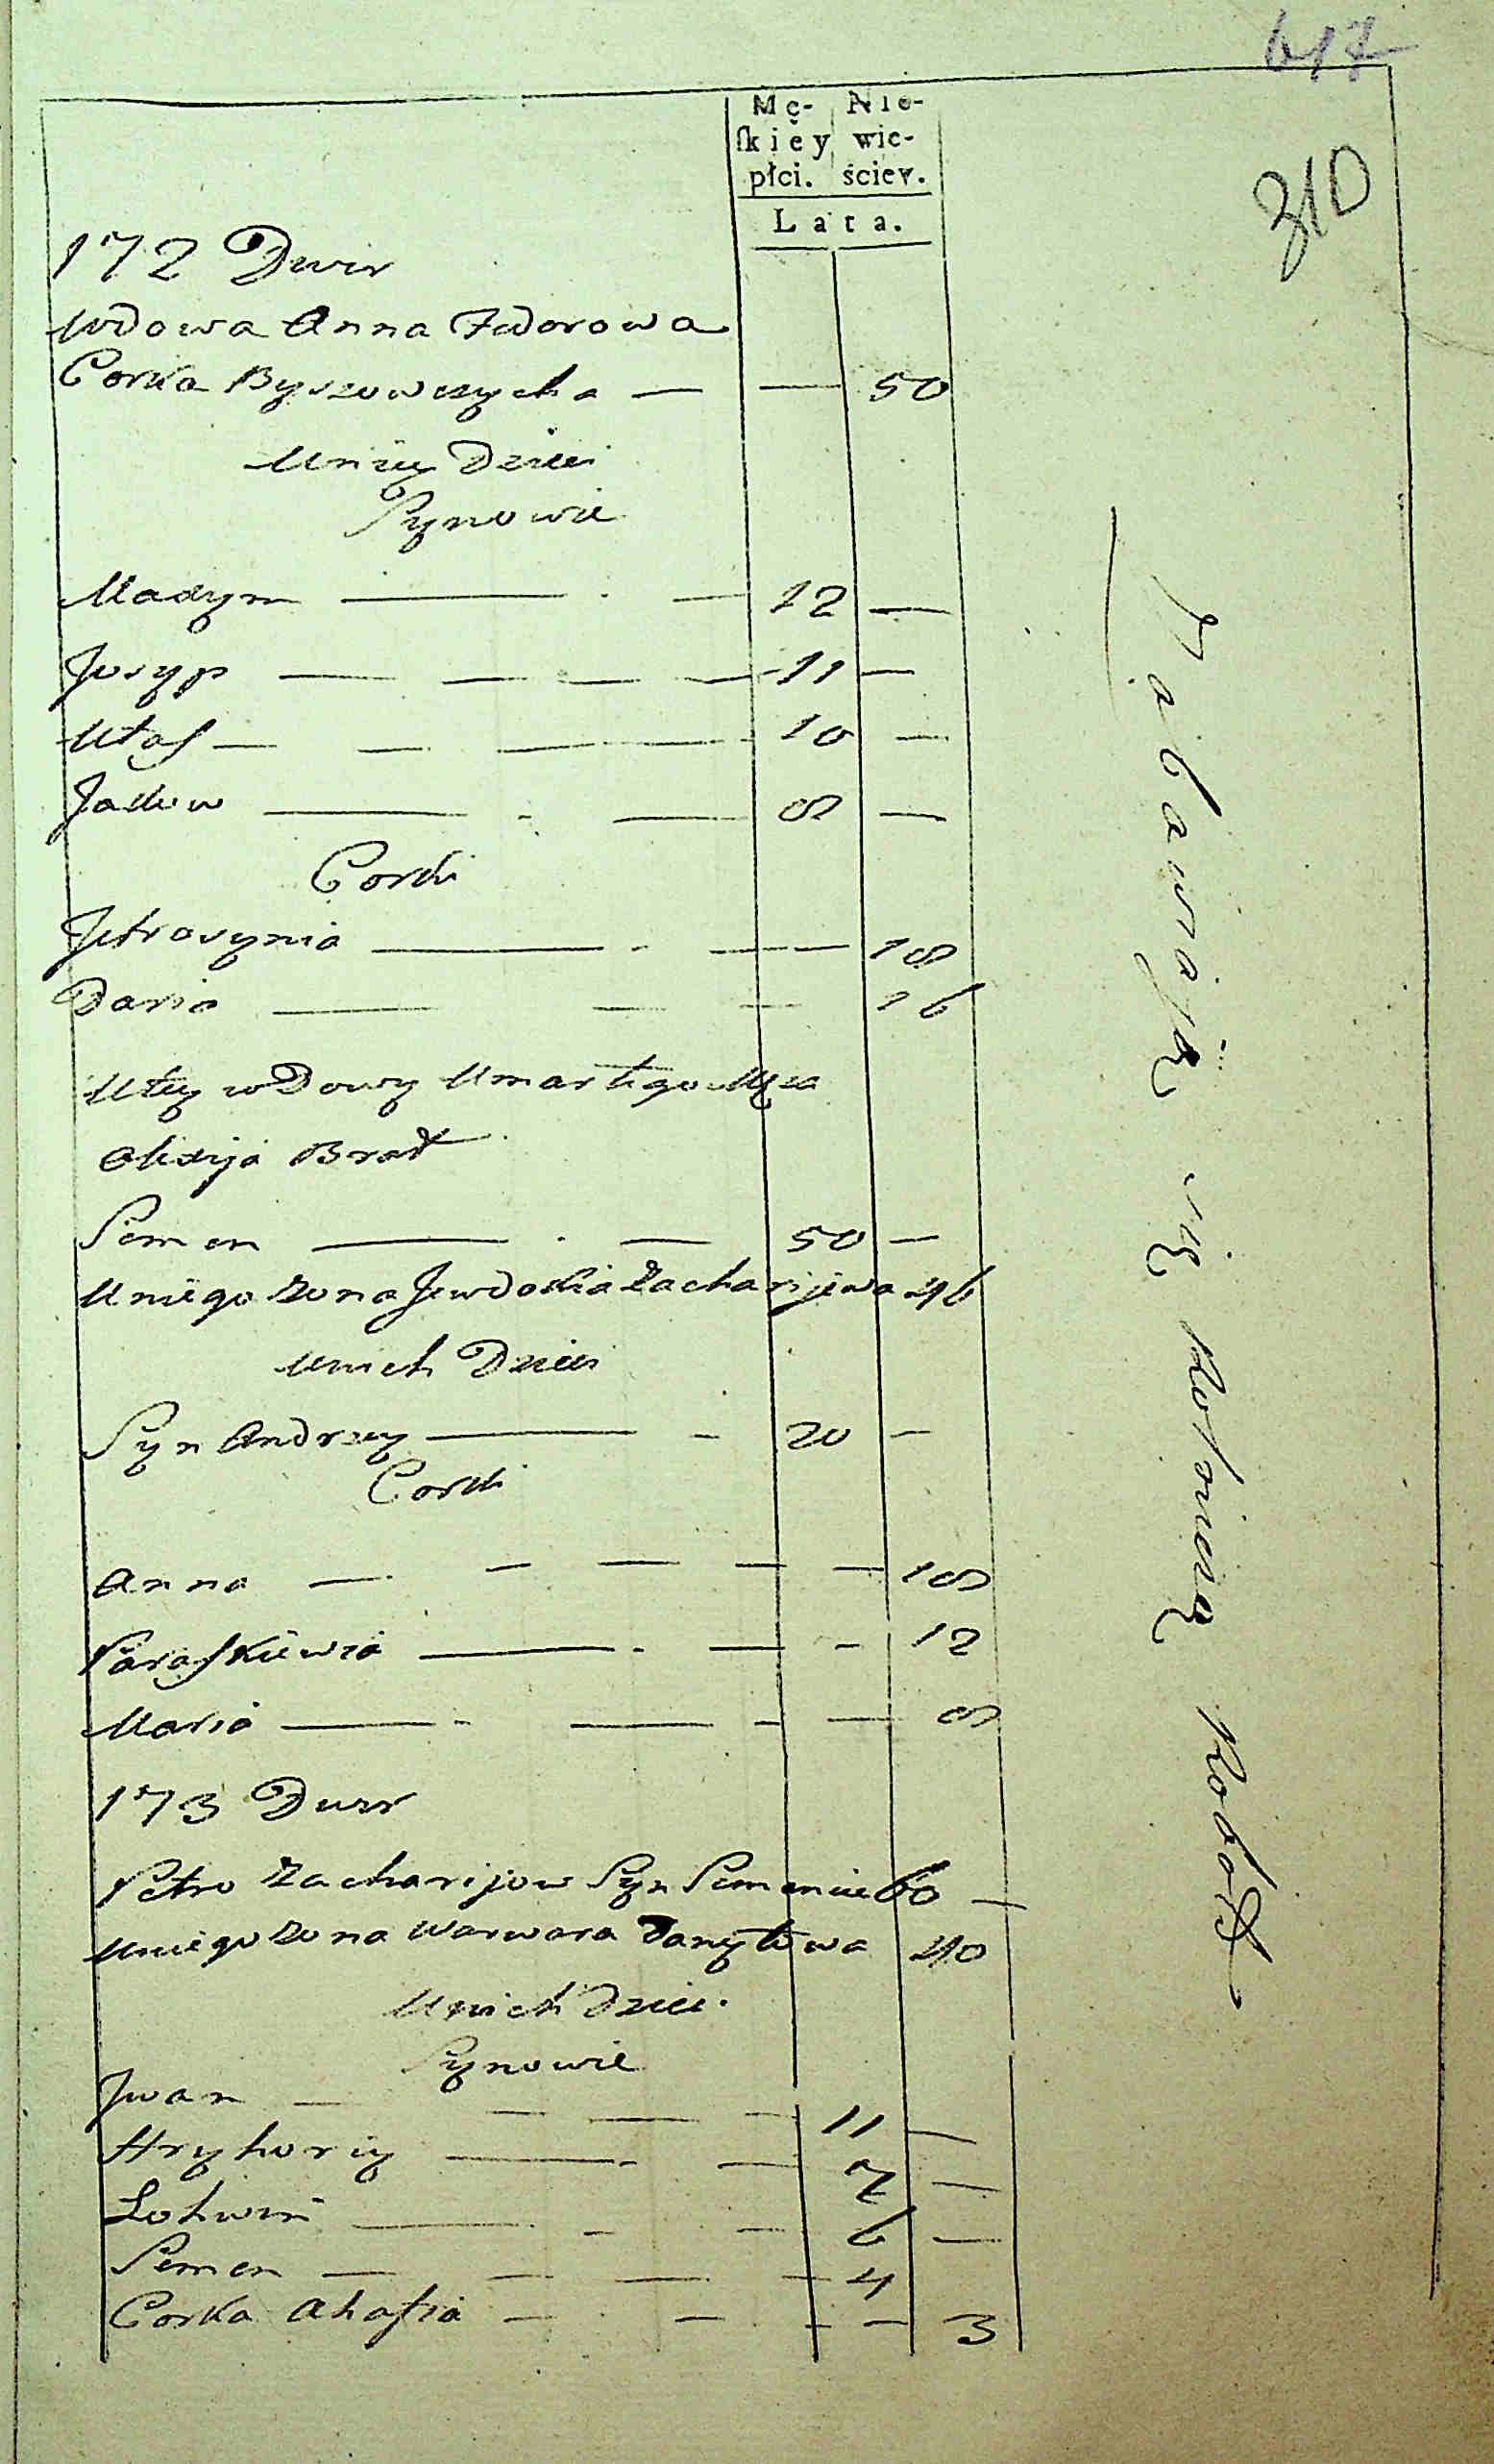 617
310
Mę- Nie-
ſkiey wie-
płci. ściey.
Lata.
172 Dwor
Wdowa Anna Fedorowa
Corka Byszowczycha — — 50
U niey Dzieci
Synowie
Maxym — 12 —
Josyp — 11 —
Własſ — 10 —
Jakow — 8 —
Corki
Jefrosynia — — 18
Daria — — 16
U tey wdowy Umarłego Męża
Olexija Brat
Semen — 50 —
U niego żona Jewdokia Zacharijewa 46
U nich Dzieci
Syn Andrzey — 20 —
Corki
Anna — — 18
Paraſkiewia — — 12
Maria — — 8
173 Dwor
Petro Zacharijow Syn 60 —
U niego żona Warwara Danyłowa 40
U nich Dzieci
Synowie
Jwan — 11 —
Hryhoriy — 7 —
Lohwin — 6 —
Semen — 4 —
Corka Ahafia — — 3
Zabawiają się Rolniczą Robotą